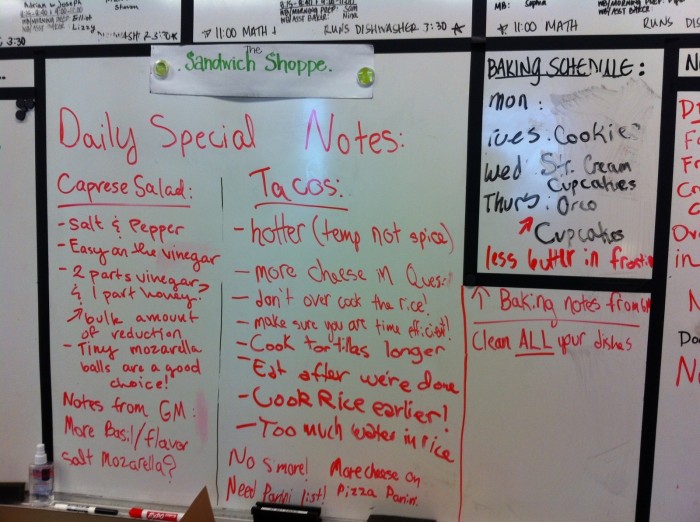 Adrian w/ Joseph
Elliot
Lizzy
3:30
11:00 MATH
RUNS DISHWASHER 3:30
MB: Sophia
W/ASST BAKER:
11:00 MATH
RUNS DIS
The
Sandwich Shoppe.
Daily Special Notes:
Caprese Salad:
- Salt & Pepper
- Easy on the vinegar
- 2 parts vinegar
& 1 part honey?
↗ bulk amount
of reduction
- Tiny mozarella
balls are a good
choice!
Notes from GM:
More Basil/flavor
Salt Mozarella?
Tacos:
- hotter (temp not spice)
- more cheese in Ques.
- don't over cook the rice!
- make sure you are time efficient!
- Cook tortillas longer
- Eat after we're done
- Cook Rice earlier!
- Too much water in rice
No s'more! More cheese on
Need Panini list! Pizza Panini.
BAKING SCHEDULE:
mon:
tues: Cookie
Wed Str. Cream
Cupcakes
Thurs: Oreo
↗ Cupcakes
less butter in frostin
↑ Baking notes from GM
Clean ALL your dishes